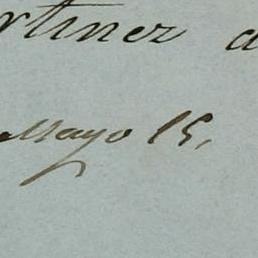 rtinez a
Mayo 15,